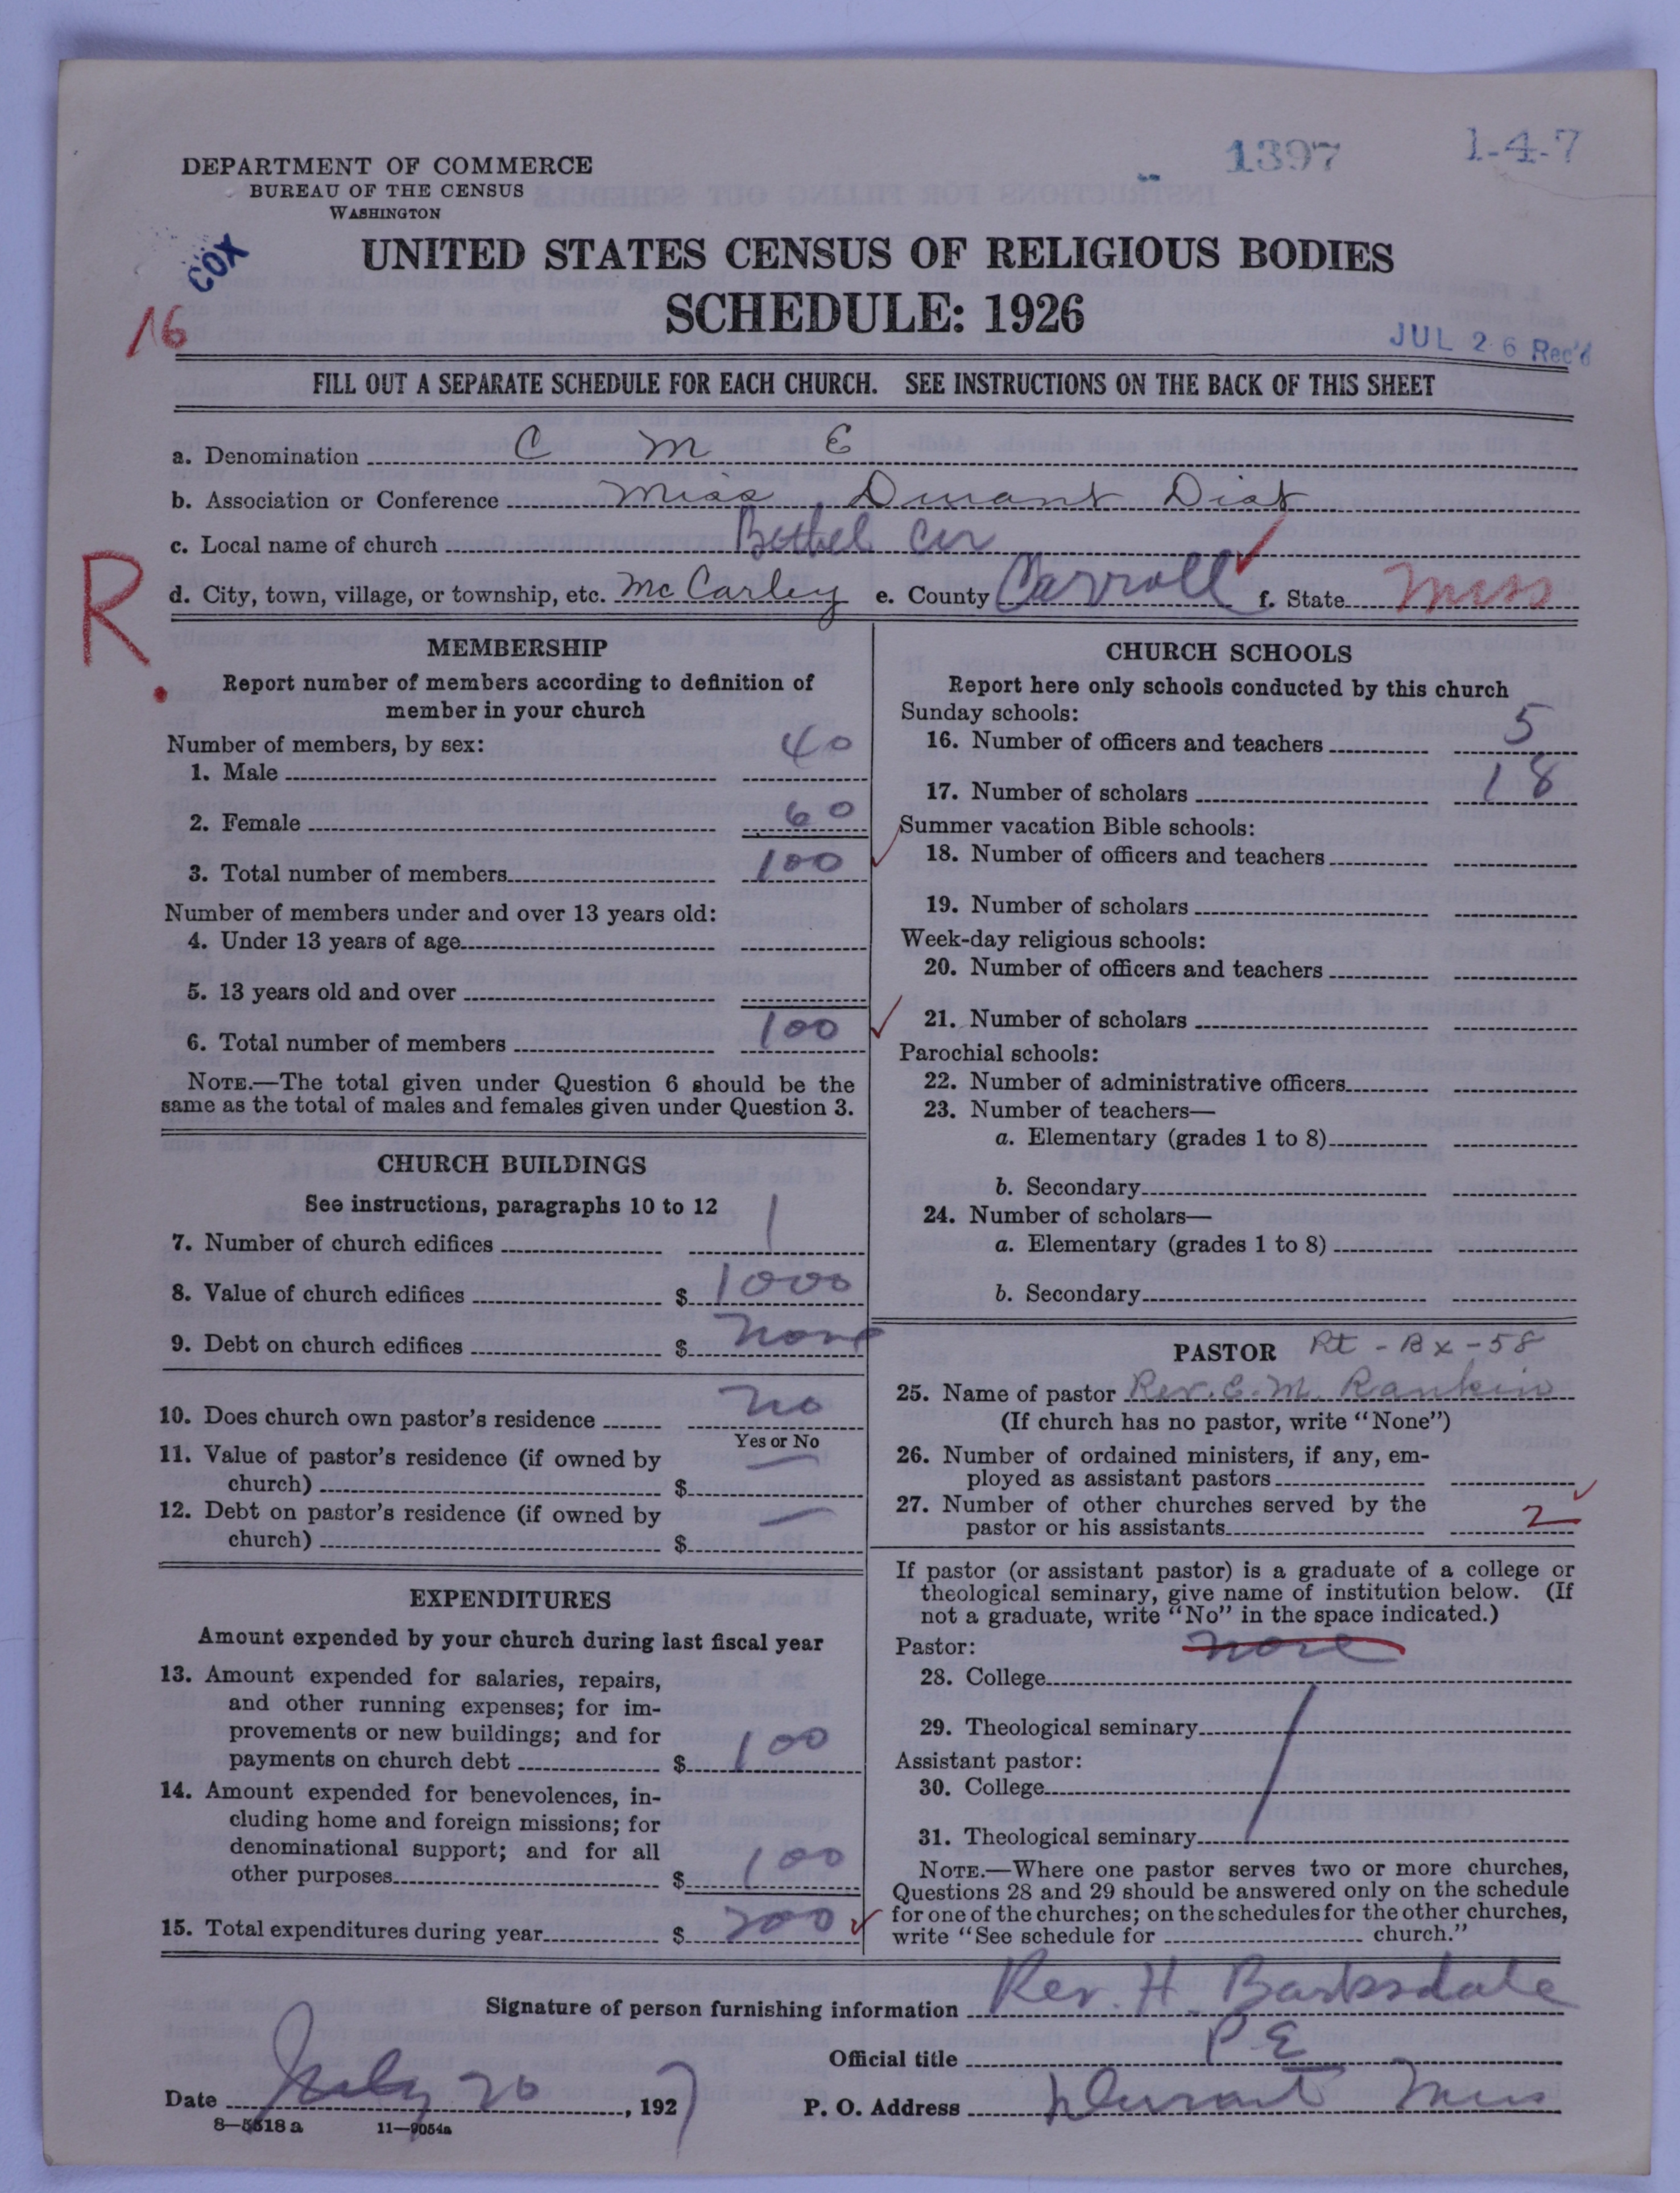 DEPARTMENT OF COMMERCE
BUREAU OF THE CENSUS
WASHINGTON
1397
1-4-7
COX
16
UNITED STATES CENSUS OF RELIGIOUS BODIES
SCHEDULE: 1926
JUL 26 Rec'd
FILL OUT A SEPARATE SCHEDULE FOR EACH CHURCH. SEE INSTRUCTIONS ON THE BACK OF THIS SHEET
a. Denomination C M E
b. Association or Conference Miss Durant Dist
c. Local name of church Bethel Cir
d. City, town, village, or township, etc. McCarley e. County Carroll f. State Miss
R.
MEMBERSHIP
Report number of members according to definition of
member in your church
Number of members, by sex:
1. Male 40
2. Female 60
3. Total number of members 100
Number of members under and over 13 years old:
4. Under 13 years of age
5. 13 years old and over
6. Total number of members 100
NOTE.—The total given under Question 6 should be the
same as the total of males and females given under Question 3.
CHURCH BUILDINGS
See instructions, paragraphs 10 to 12
7. Number of church edifices 1
8. Value of church edifices $ 1000
9. Debt on church edifices $ none
10. Does church own pastor's residence no
Yes or No
11. Value of pastor's residence (if owned by
church) $ —
12. Debt on pastor's residence (if owned by
church) $ —
EXPENDITURES
Amount expended by your church during last fiscal year
13. Amount expended for salaries, repairs,
and other running expenses; for im-
provements or new buildings; and for
payments on church debt $ 100
14. Amount expended for benevolences, in-
cluding home and foreign missions; for
denominational support; and for all
other purposes $ 100
15. Total expenditures during year $ 200
CHURCH SCHOOLS
Report here only schools conducted by this church
Sunday schools:
16. Number of officers and teachers 5
17. Number of scholars 18
Summer vacation Bible schools:
18. Number of officers and teachers
19. Number of scholars
Week-day religious schools:
20. Number of officers and teachers
21. Number of scholars
Parochial schools:
22. Number of administrative officers
23. Number of teachers—
a. Elementary (grades 1 to 8)
b. Secondary
24. Number of scholars—
a. Elementary (grades 1 to 8)
b. Secondary
PASTOR Rt - Bx - 58
25. Name of pastor Rev. E. M. Rankin
(If church has no pastor, write "None")
26. Number of ordained ministers, if any, em-
ployed as assistant pastors
27. Number of other churches served by the
pastor or his assistants 2
If pastor (or assistant pastor) is a graduate of a college or
theological seminary, give name of institution below. (If
not a graduate, write "No" in the space indicated.)
Pastor: none
28. College
29. Theological seminary
Assistant pastor:
30. College
31. Theological seminary
NOTE.—Where one pastor serves two or more churches,
Questions 28 and 29 should be answered only on the schedule
for one of the churches; on the schedules for the other churches,
write "See schedule for church."
Signature of person furnishing information Rev. H. Barksdale
Official title P E
Date July 20, 1927 P. O. Address Durant Miss
8—5518 a 11—9054a